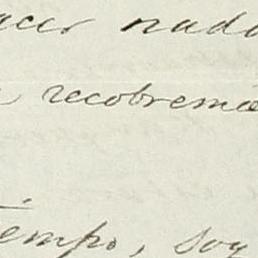 acer nada
recobreme
tempo, soy